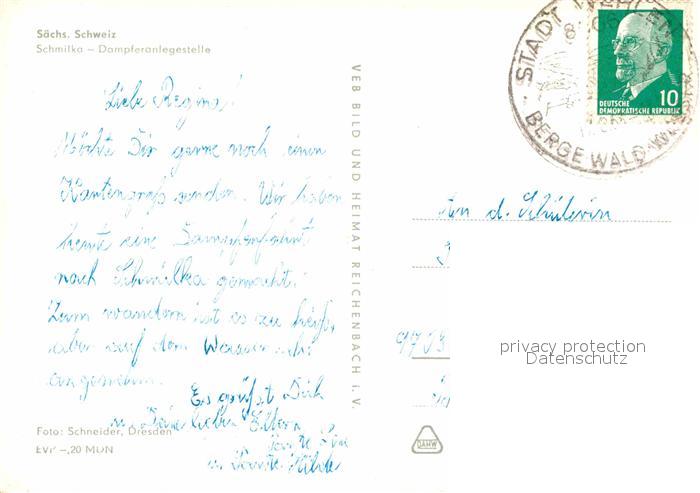 Sächs. Schweiz
Schmilka – Dampferanlegestelle
Liebe Regina!
Möchte Dir gerne noch einen
Kartengruß senden. Wir haben
heute eine Dampferfahrt
nach Schmilka gemacht.
Zum wandern ist es zu heiß,
aber auf dem Wasser
angenehm.
Es grüßt Dich
u. Deine lieben Eltern
Tante
u. Tante Hilde
Foto: Schneider, Dresden
EVP –,20 MDN
VEB BILD UND HEIMAT REICHENBACH i. V.
STADT
BERGE WALD
10
DEUTSCHE
DEMOKRATISCHE REPUBLIK
An d. Schülerin
privacy protection
Datenschutz
DAHW